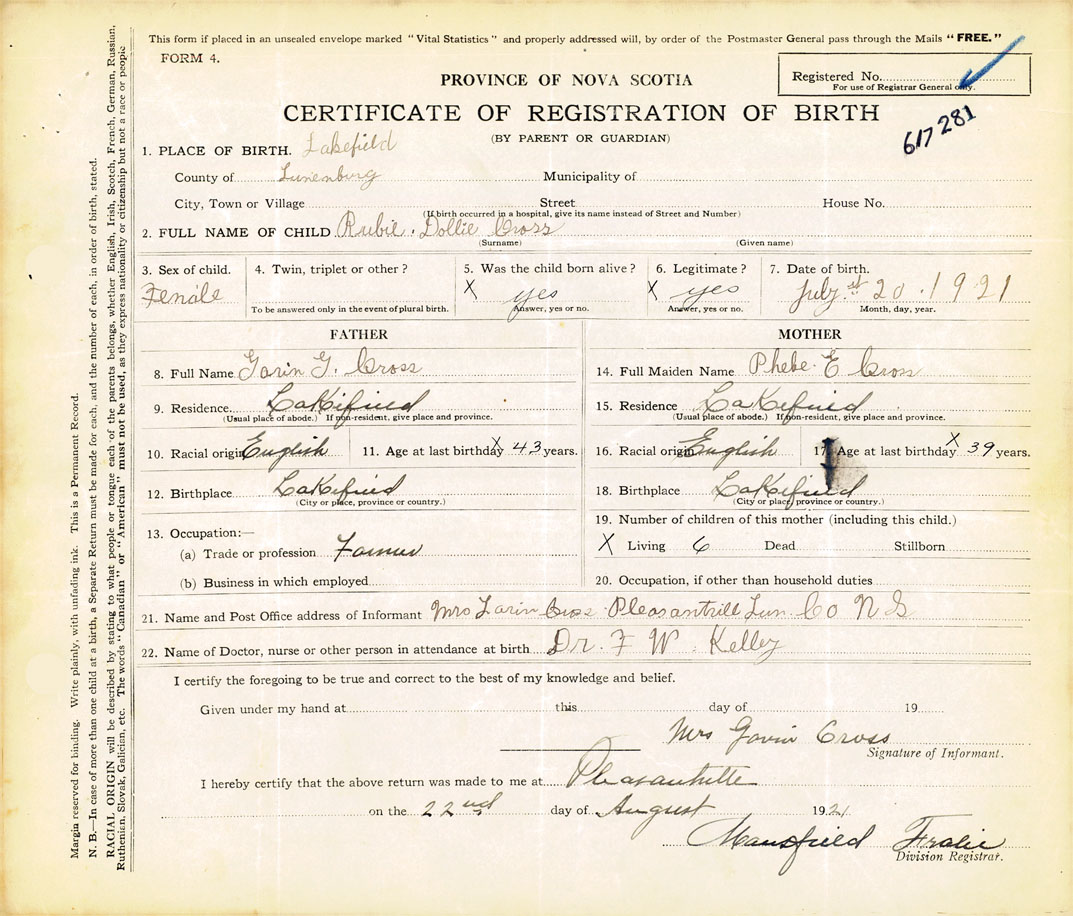 This form if placed in an unsealed envelope marked "Vital Statistics" and properly addressed will, by order of the Postmaster General pass through the Mails "FREE."
FORM 4.
Registered No.
For use of Registrar General only.
617 281
PROVINCE OF NOVA SCOTIA
CERTIFICATE OF REGISTRATION OF BIRTH
(BY PARENT OR GUARDIAN)
1. PLACE OF BIRTH. Lakefield
County of Lunenburg Municipality of
City, Town or Village Street House No.
(If birth occurred in a hospital, give its name instead of Street and Number)
2. FULL NAME OF CHILD Rubie Dollie Cross
(Surname) (Given name)
3. Sex of child. 4. Twin, triplet or other? 5. Was the child born alive? 6. Legitimate? 7. Date of birth.
Female X yes X yes July st 20 . 1921
To be answered only in the event of plural birth. Answer, yes or no. Answer, yes or no. Month, day, year.
FATHER
8. Full Name Gavin G. Cross
9. Residence. Lakefield
(Usual place of abode.) If non-resident, give place and province.
10. Racial origin English 11. Age at last birthday X 43 years.
12. Birthplace Lakefield
(City or place, province or country.)
13. Occupation:—
(a) Trade or profession Farmer
(b) Business in which employed
MOTHER
14. Full Maiden Name Phebe E Cross
15. Residence Lakefield
(Usual place of abode.) If non-resident, give place and province.
16. Racial origin English 17. Age at last birthday X 39 years.
18. Birthplace Lakefield
(City or place, province or country.)
19. Number of children of this mother (including this child.)
X Living 6 Dead Stillborn
20. Occupation, if other than household duties
21. Name and Post Office address of Informant Mrs Cross Lun. Co N S
22. Name of Doctor, nurse or other person in attendance at birth Dr. F W Kelley
I certify the foregoing to be true and correct to the best of my knowledge and belief.
Given under my hand at this day of 19
Mrs Gavin Cross
Signature of Informant.
I hereby certify that the above return was made to me at
on the 22nd day of August 1921
Mansfield
Division Registrar.
Margin reserved for binding. Write plainly, with unfading ink. This is a Permanent Record.
N. B.—In case of more than one child at a birth, a Separate Return must be made for each, and the number of each, in order of birth, stated.
RACIAL ORIGIN will be described by stating to what people or tongue each of the parents belongs, whether English, Irish, Scotch, French, German, Russian,
Ruthenian, Slovak, Galician, etc. The words "Canadian" or "American" must not be used, as they express nationality or citizenship but not a race or people